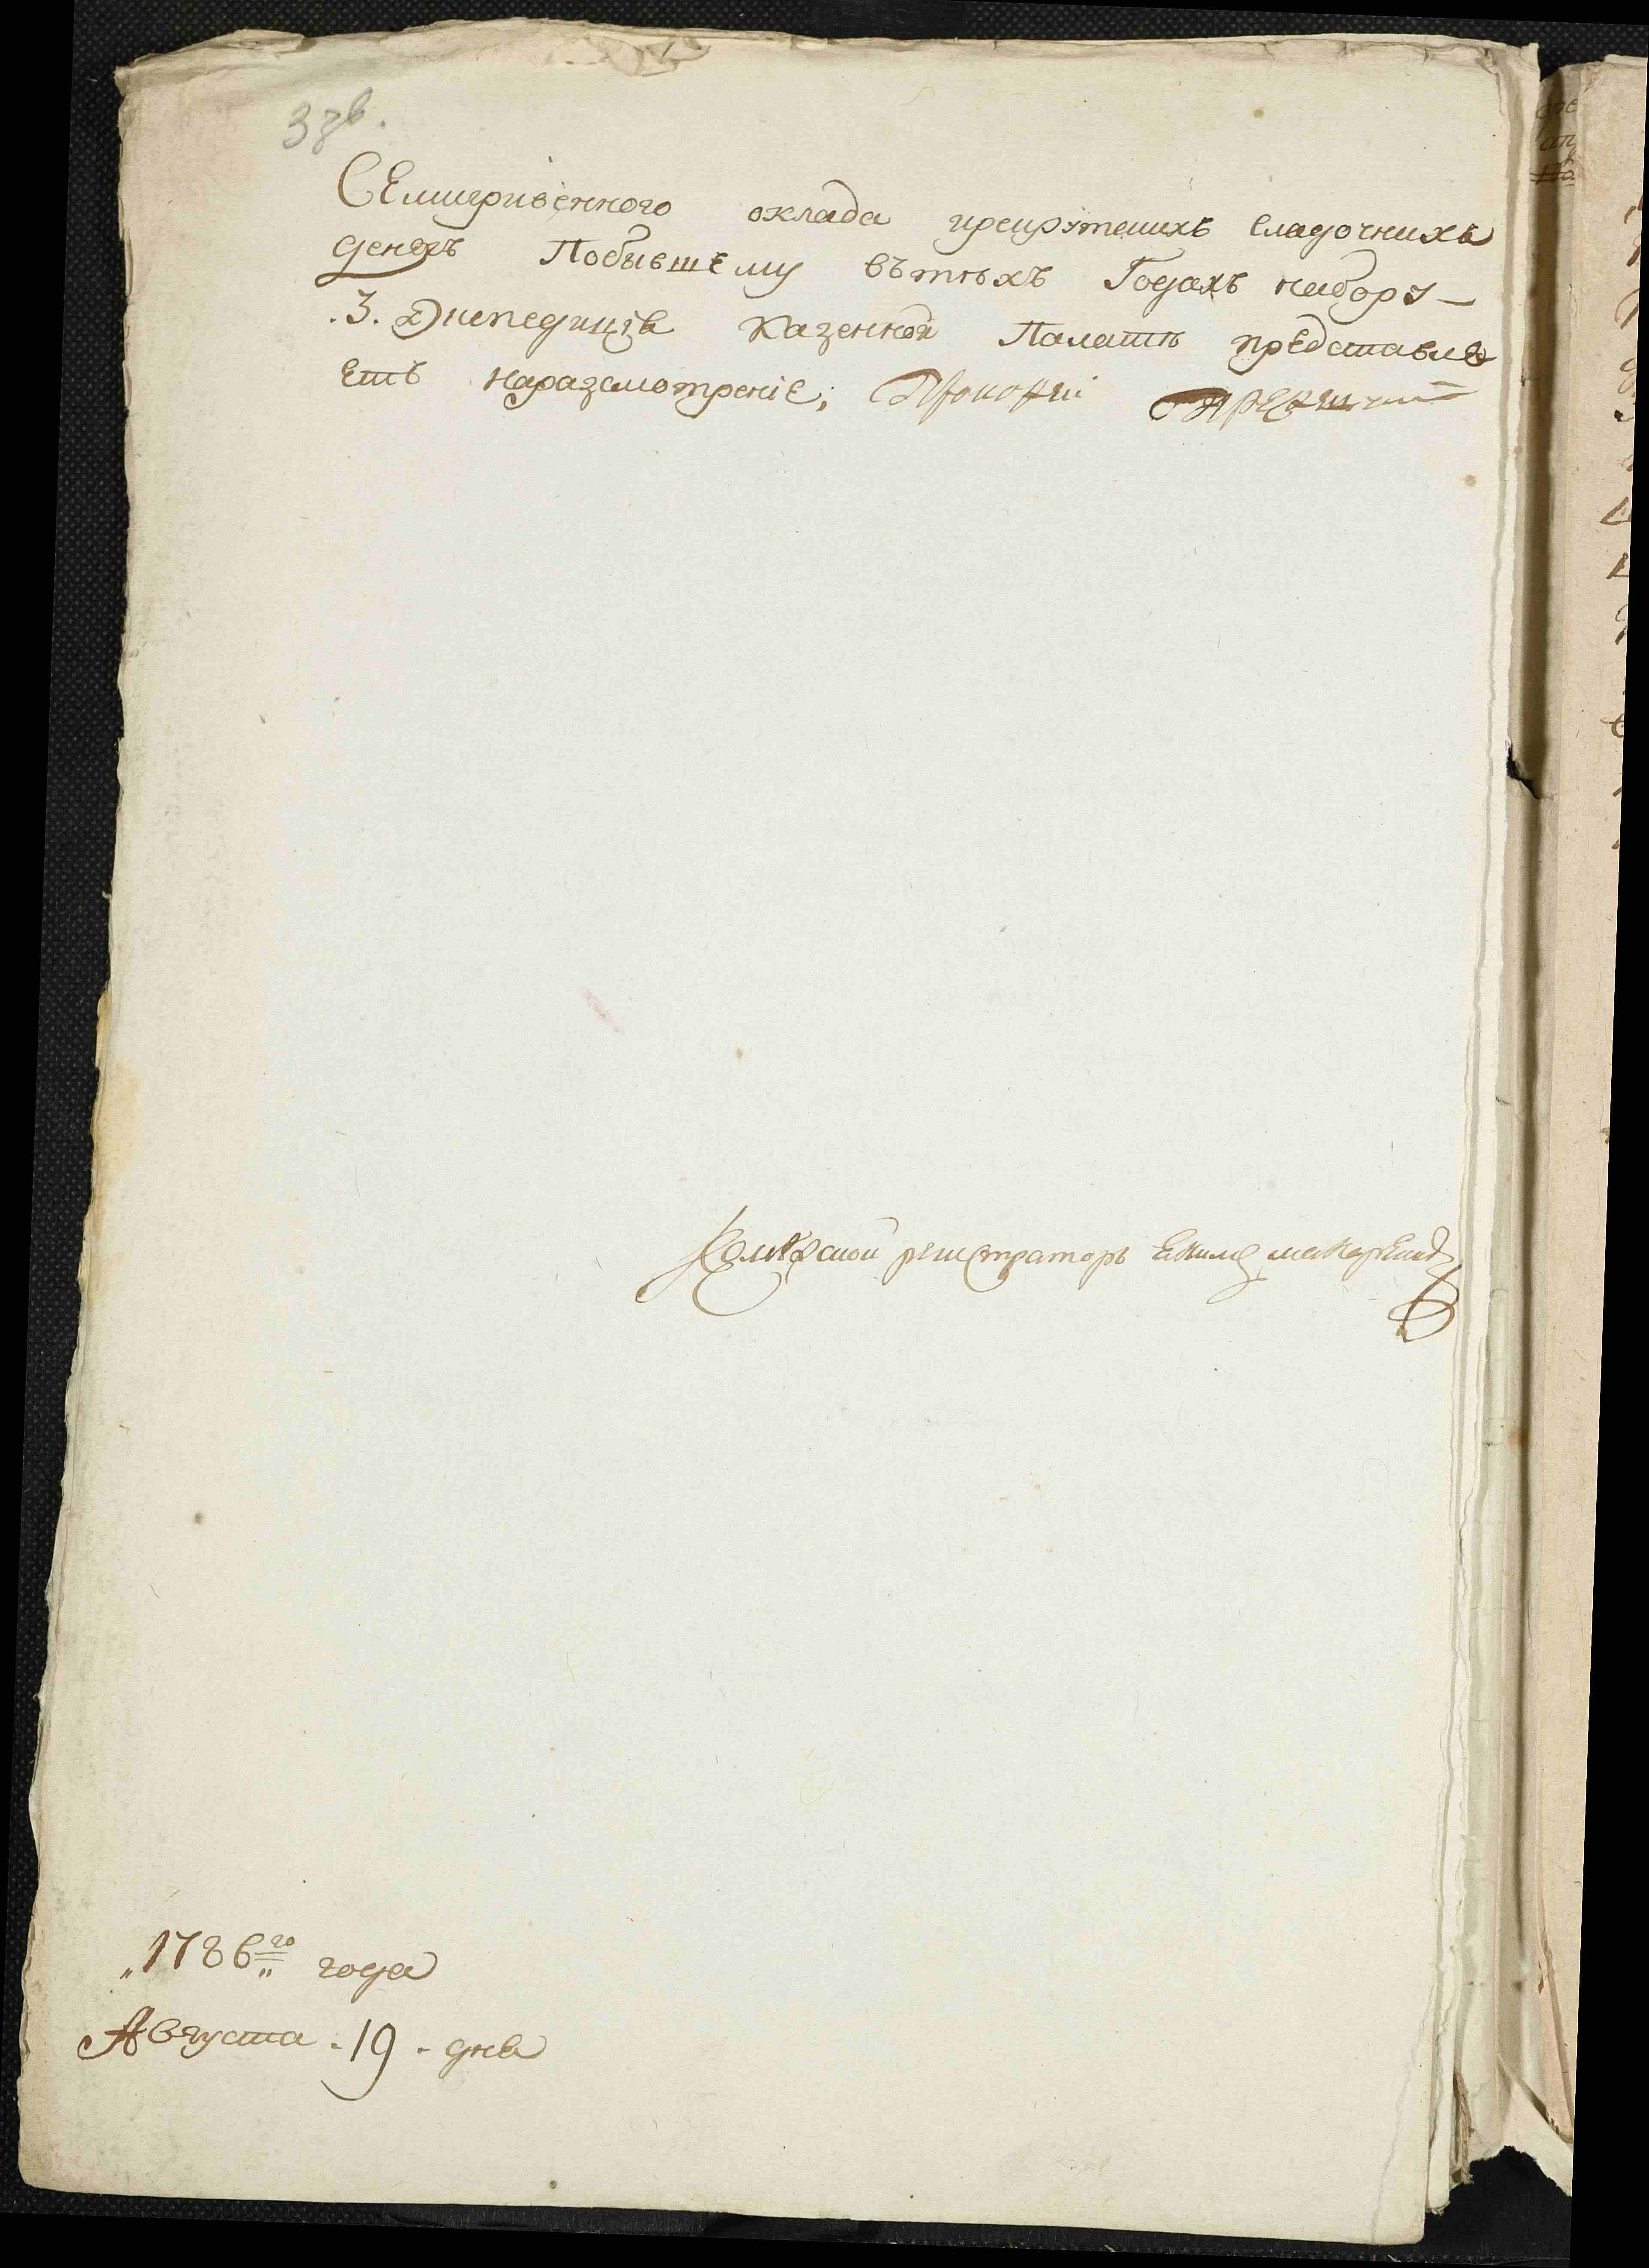 38б.
Семигривенного оклада и рекрутскихъ складочнихъ
денегъ Побывшему вътѣхъ Годахъ набору
.3. Экспедиція Казенной Палатѣ представля
етъ наразсмотреніе; Прокофій
Колежской регистраторъ Еким Макар
„1786„го года
Августа . 19 . дня